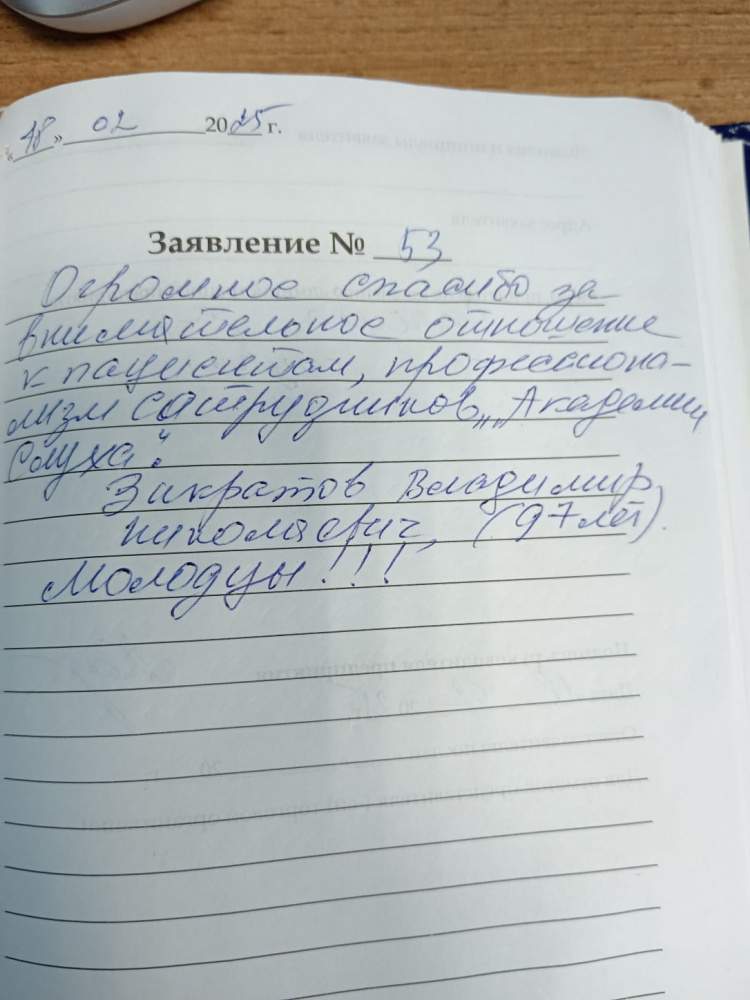 «18» 02 2025 г.
Заявление № 53
Огромное спасибо за
внимательное отношение
к пациентам, профессиона-
лизм сотрудников „Академии
Слуха".
Закратов Владимир
Николаевич, (97 лет).
Молодцы!!!